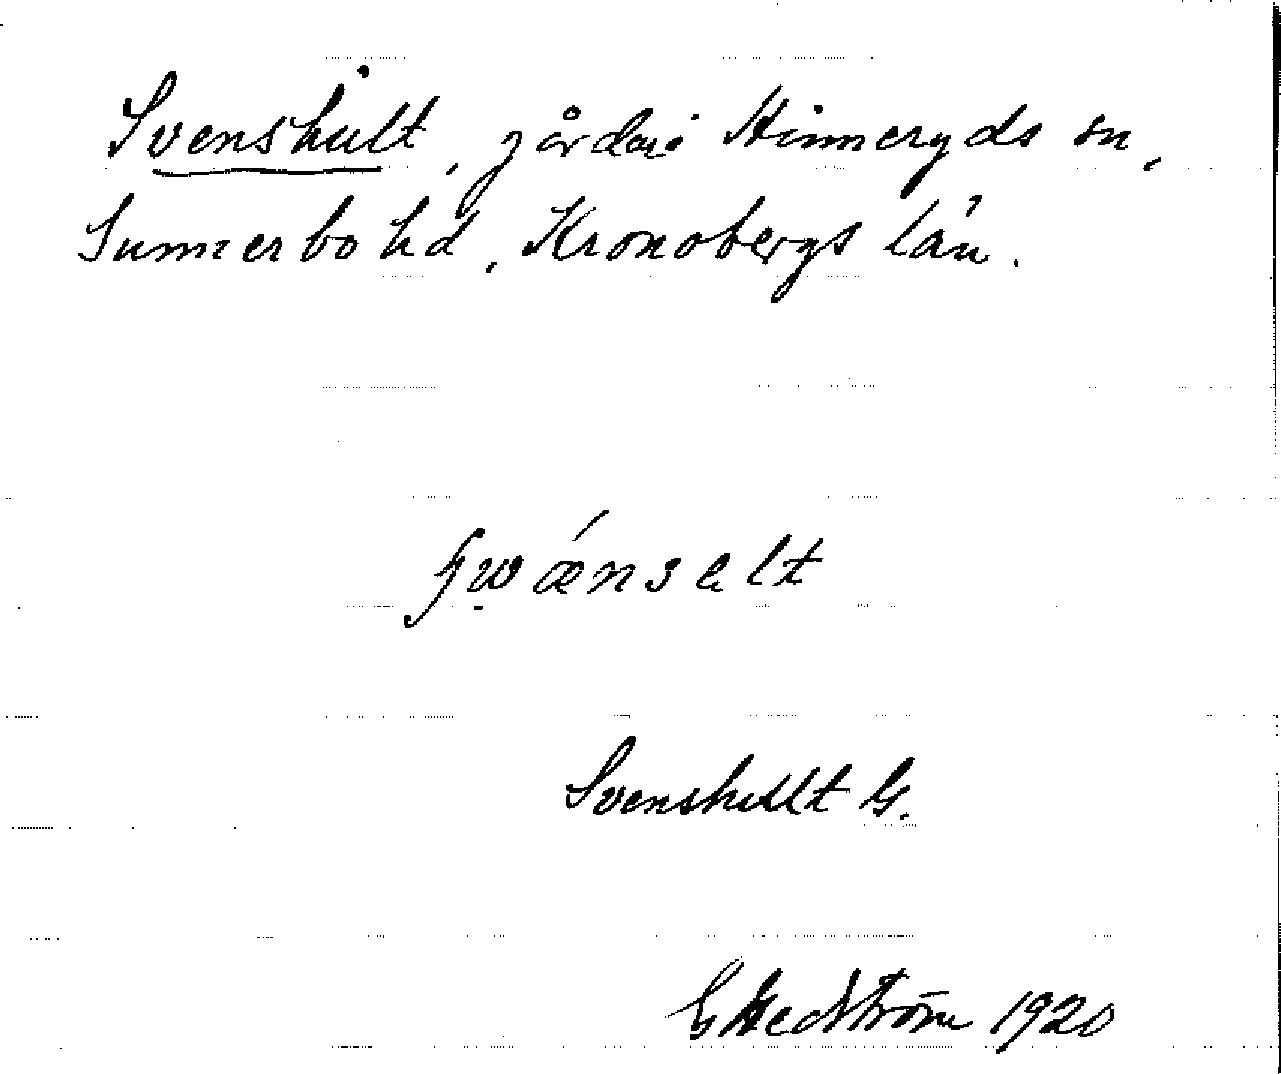 Svenshult, gårdar i Hinneryds sn,
Sunnerbo hd, Kronobergs län.
swǽnselt
Svenshult G.
G Hedström 1920